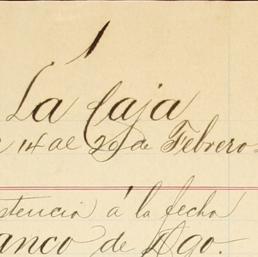 1
La Caja
14 al 20 de Febrero
stencia á la fecha
anco de Ago.